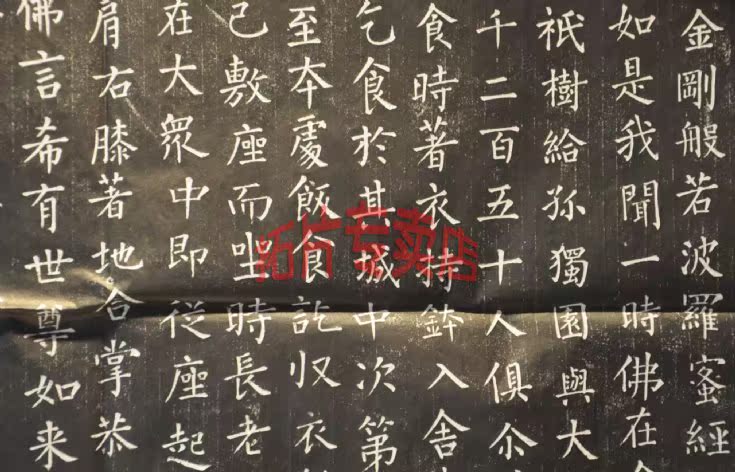 金剛般若波羅蜜經
如是我聞一時佛在
祇樹給孤獨園與大
千二百五十人俱尒
食時著衣持鉢入舍
乞食於其城中次第
至本處飯食訖収衣
已敷座而坐時長老
在大眾中即從座起
肩右膝著地合掌恭
佛言希有世尊如来
拓片专卖店